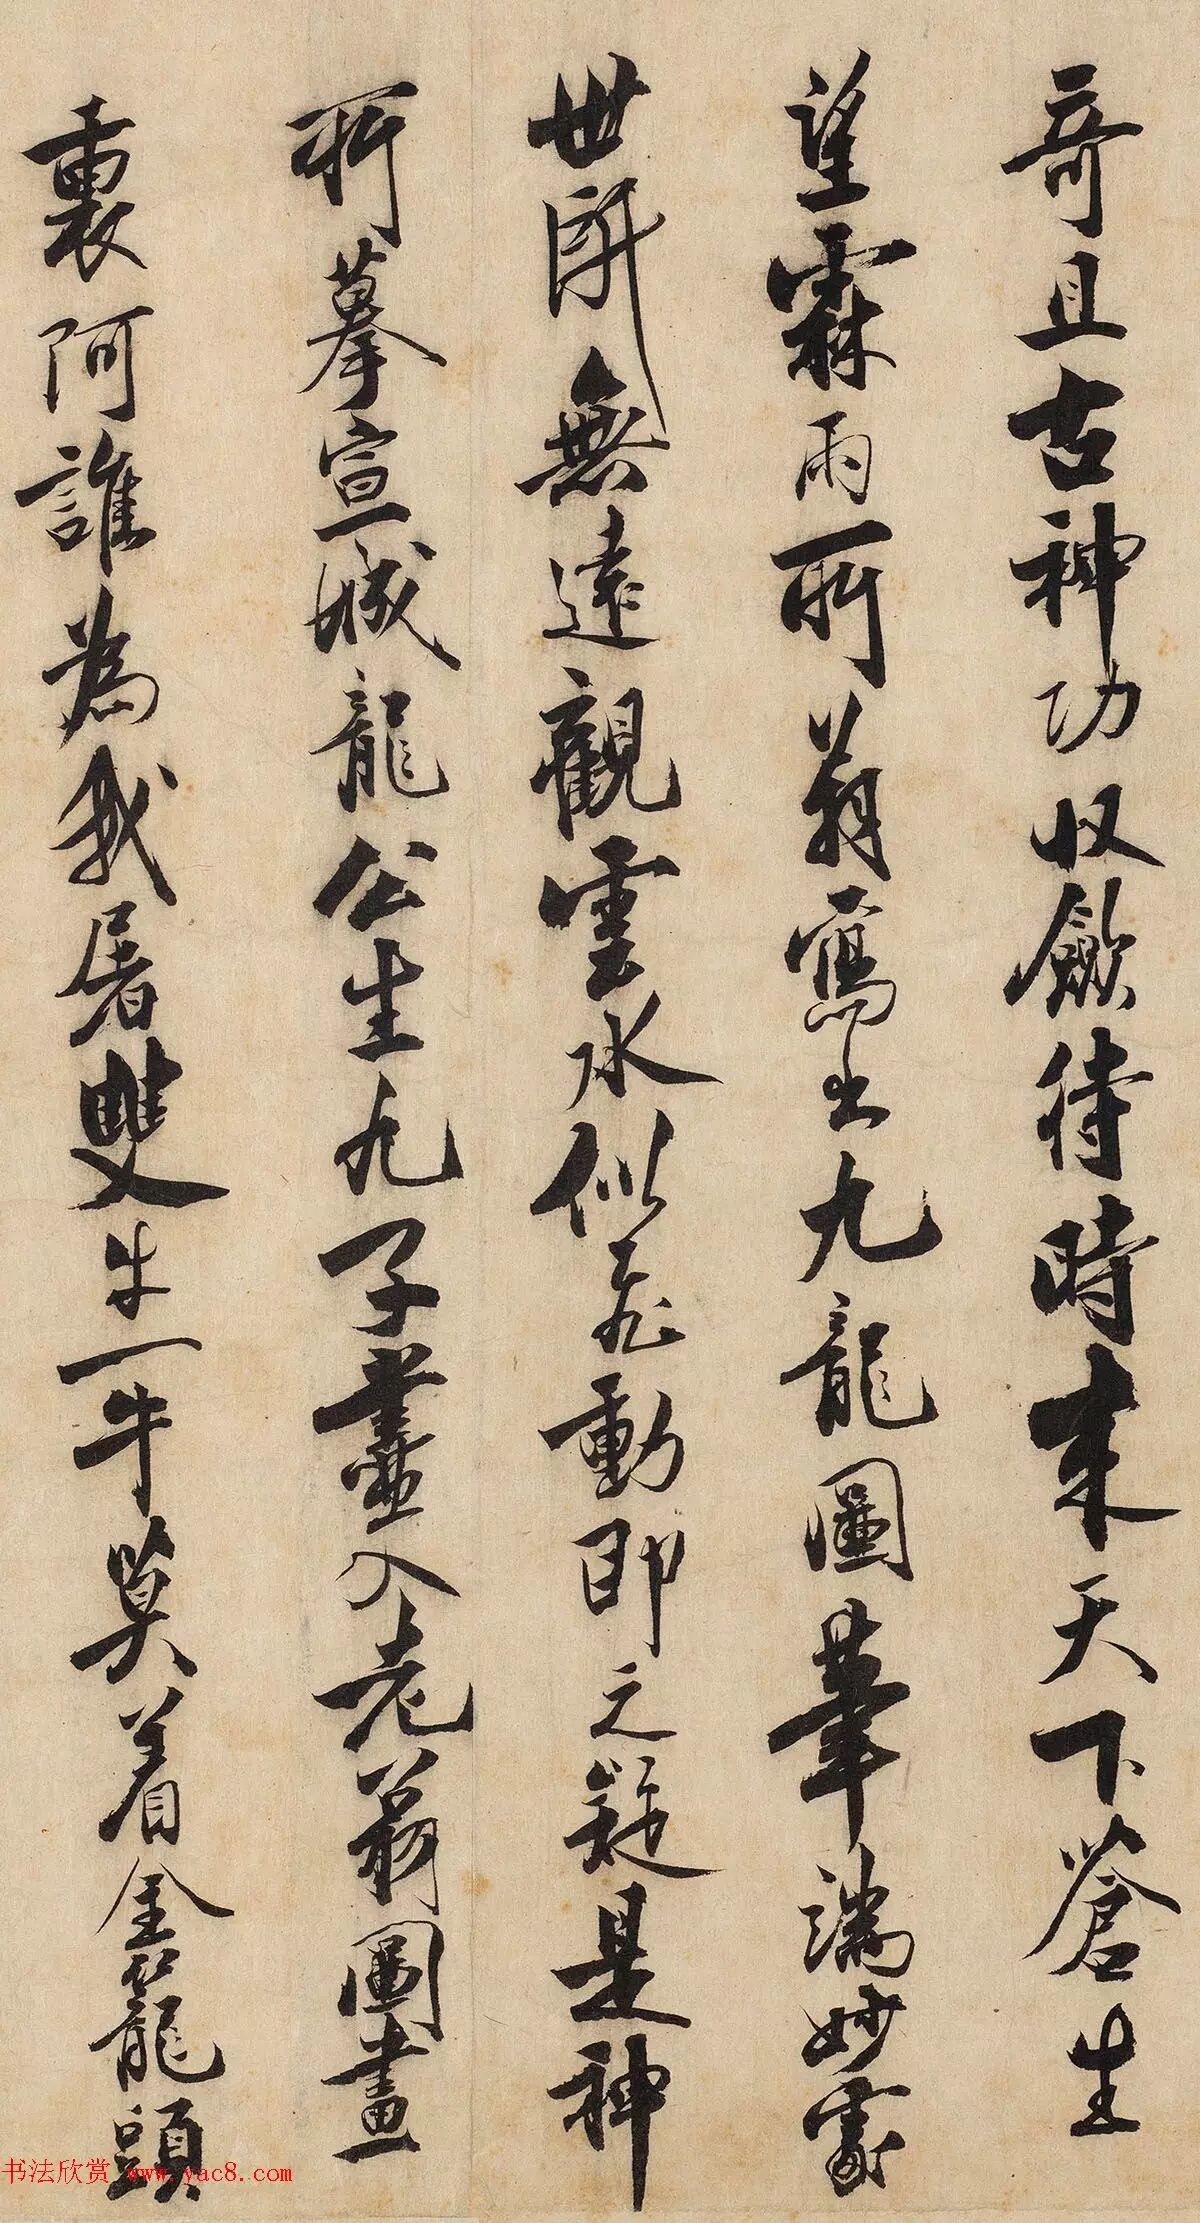 奇且古神功收斂待時來天下蒼生
望霖雨所翁寫出九龍圖筆端妙處
世所無遠觀雲水似飛動即之疑是神
所摹宣城龍公生九子畫入老翁圖畫
裏阿誰為我屠雙牛一牛莫着金籠頭
书法欣赏 www.yac8.com